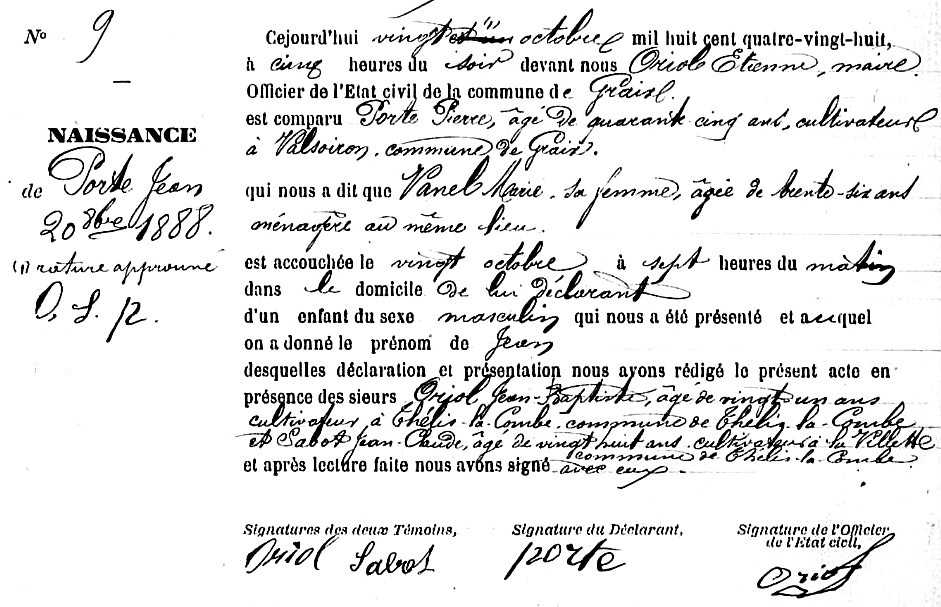 N° 9
NAISSANCE
de Porte Jean
20 8bre 1888.
(1) rature approuvé
O, S. p.
Cejourd'hui vingt et un (1) octobre mil huit cent quatre-vingt-huit,
à cinq heures du soir devant nous Oriol Etienne, maire.
Officier de l'Etat civil de la commune de Graix.
est comparu Porte Pierre, âgé de quarante cinq ans, cultivateur
à Valsoiron, commune de Graix.
qui nous a dit que Vanel Marie, sa femme, âgée de trente-six ans
ménagère au même lieu.
est accouchée le vingt octobre à sept heures du matin
dans le domicile de lui déclarant
d'un enfant du sexe masculin qui nous a été présenté et auquel
on a donné le prénom de Jean
desquelles déclaration et présentation nous avons rédigé le présent acte en
présence des sieurs Oriol Jean-Baptiste, âgé de vingt un ans
cultivateur, à Thélis-la-Combe, commune de Thélis-la-Combe
et Sabot Jean-Claude, âgé de vingt huit ans, cultivateur à la Villette
commune de Thélis-la-Combe
et après lecture faite nous avons signé avec eux.
Signatures des deux Témoins,
Signature du Déclarant,
Signature de l'Officier
de l'Etat civil,
Oriol Sabot
porte
Oriol